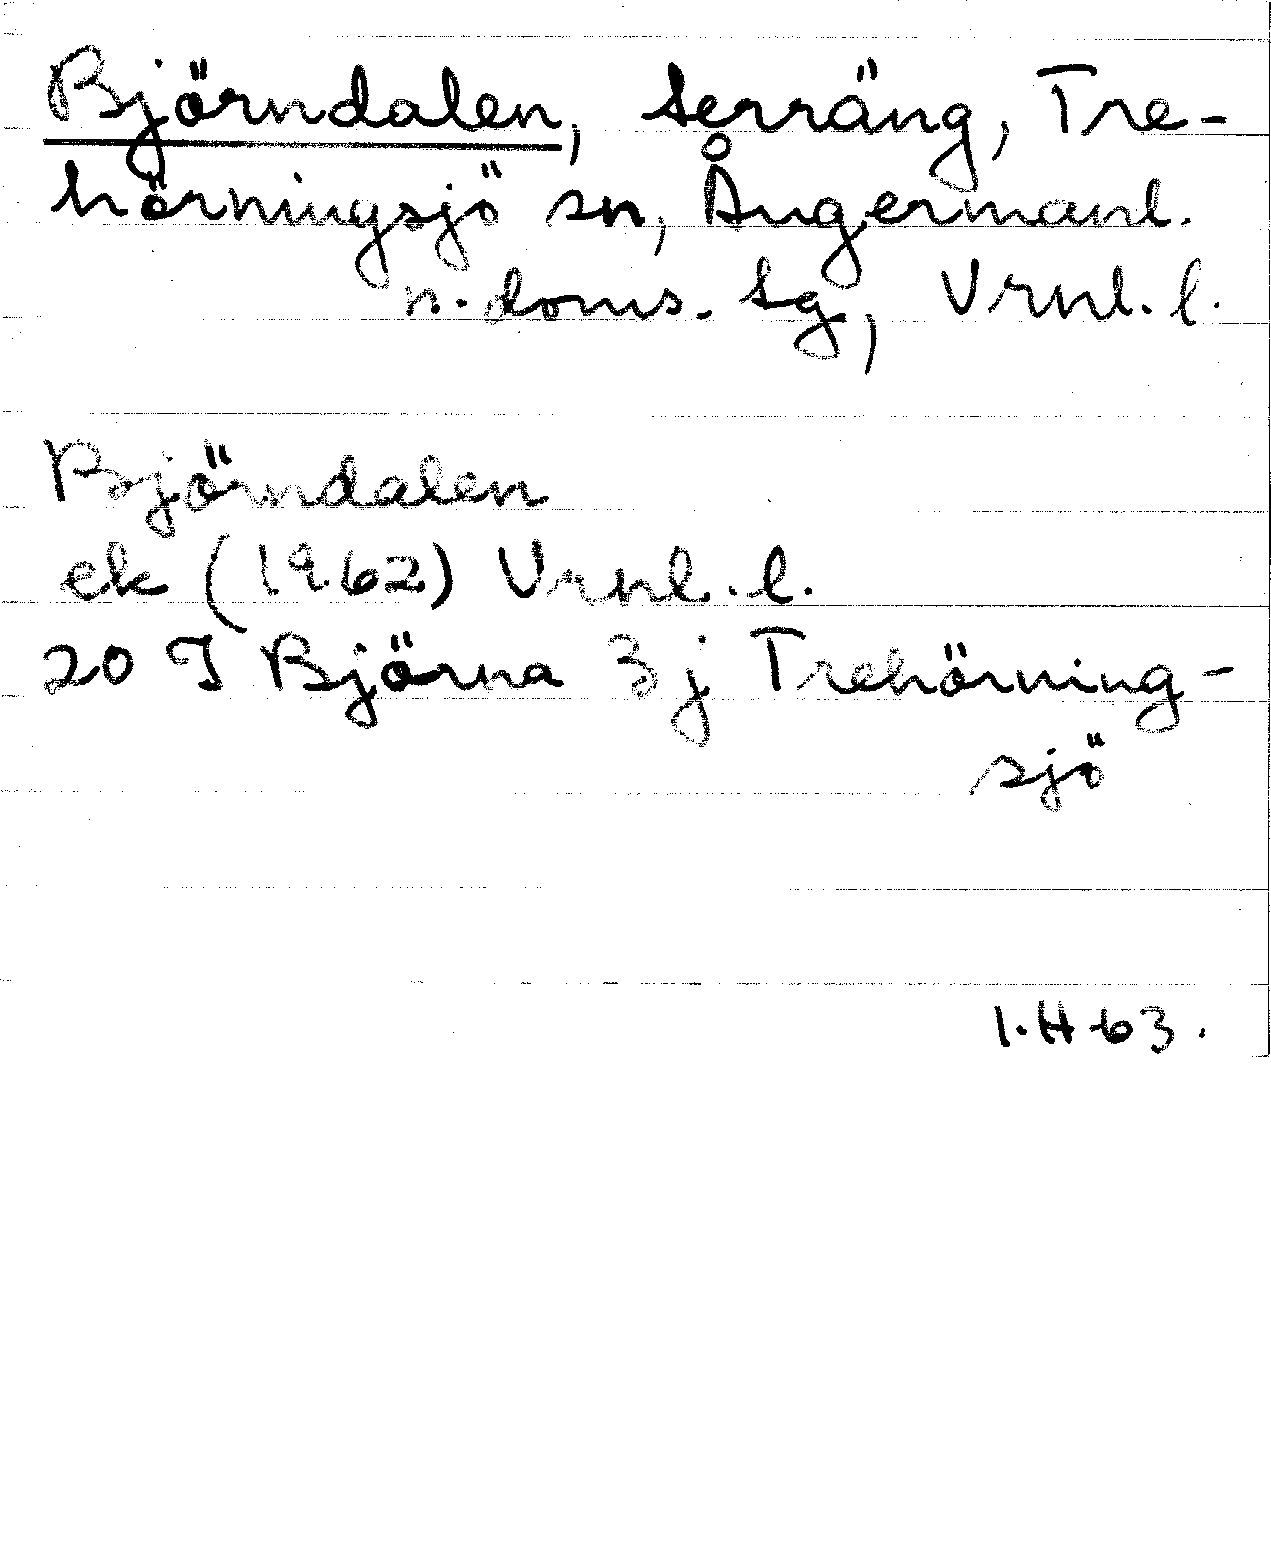 Björndalen, terräng, Tre-
hörningsjö sn, Ångermanl.
n. doms. sg, Vrnl. l.
Björndalen
ek (1962) Vrnl. l.
20 I Björna 3 j Trehörning-
sjö
I.H-63.